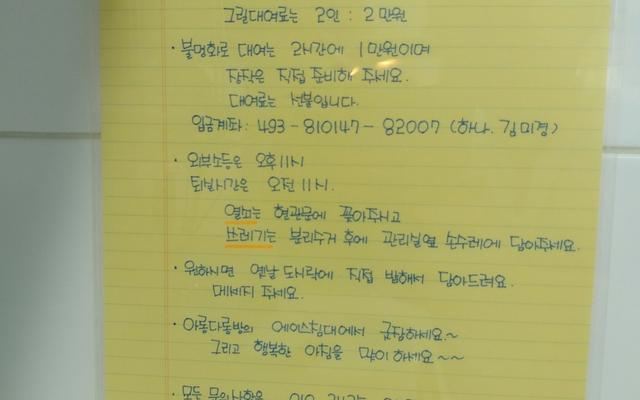 그릴대여료는 2인 : 2만원
· 불멍화로 대여는 2시간에 1만원이며
장작은 직접 준비해 주세요.
대여료는 선불입니다.
입금계좌: 493-810147-82007 (하나. 김미경)
· 외부소등은 오후11시
퇴실시간은 오전 11시.
열쇠는 현관문에 꽂아주시고
쓰레기는 분리수거 후에 관리실옆 손수레에 담아주세요.
· 원하시면 옛날 도시락에 직접 밥해서 담아드려요.
메세지 주세요.
· 아롱다롱방의 에이스침대에서 굿잠하세요.~
그리고 행복한 아침을 맞이하세요~~
· 모든 문의사항은 010